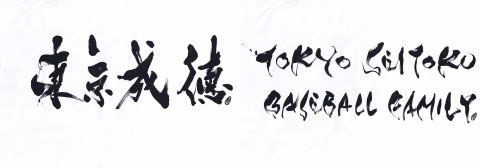 東京成徳。
TOKYO SEITOKU
BASEBALL FAMILY.